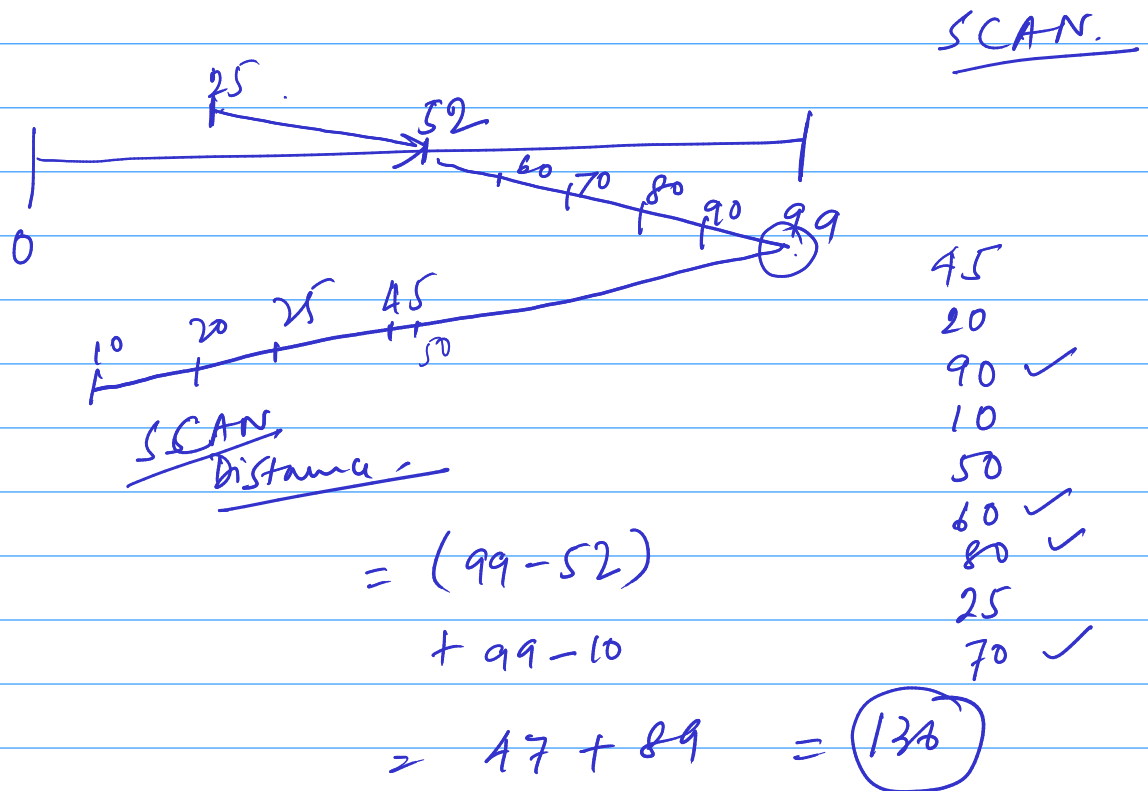 SCAN.
25
52
60 70 80 90 99
0
10 20 25 45
50
SCAN
Distance
= (99-52)
+ 99-10
= 47 + 89 = 136
45
20
90 ✓
10
50
60 ✓
80 ✓
25
70 ✓